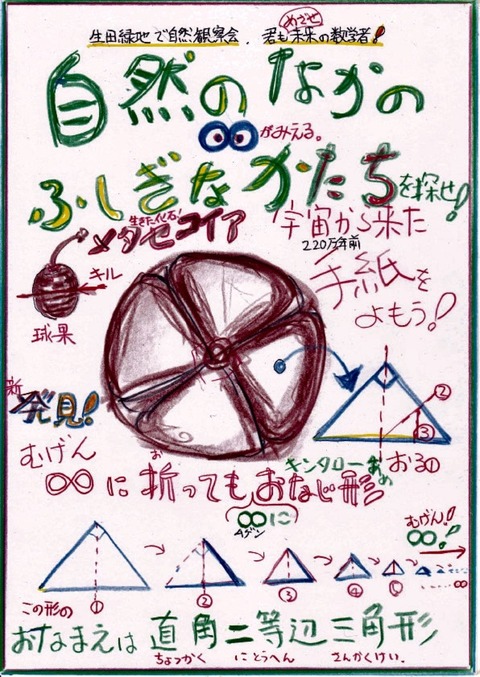 生田緑地で自然観察会、君もめざせ未来の数学者!
自然のなかの
がみえる。
ふしぎなかたちを探せ!
生きた化石!
メタセコイア
宇宙から来た
220万年前
手紙を
よもう!
キル
球果
新
発見!
②
③
キンタローあめ
おる①
むげん
∞に折ってもおなじ形
お
(∞に)
むげん!
∞!
① ② ③ ④ ⑤
∞
この形の
おなまえは直角二等辺三角形
ちょっかく にとうへん さんかくけい.